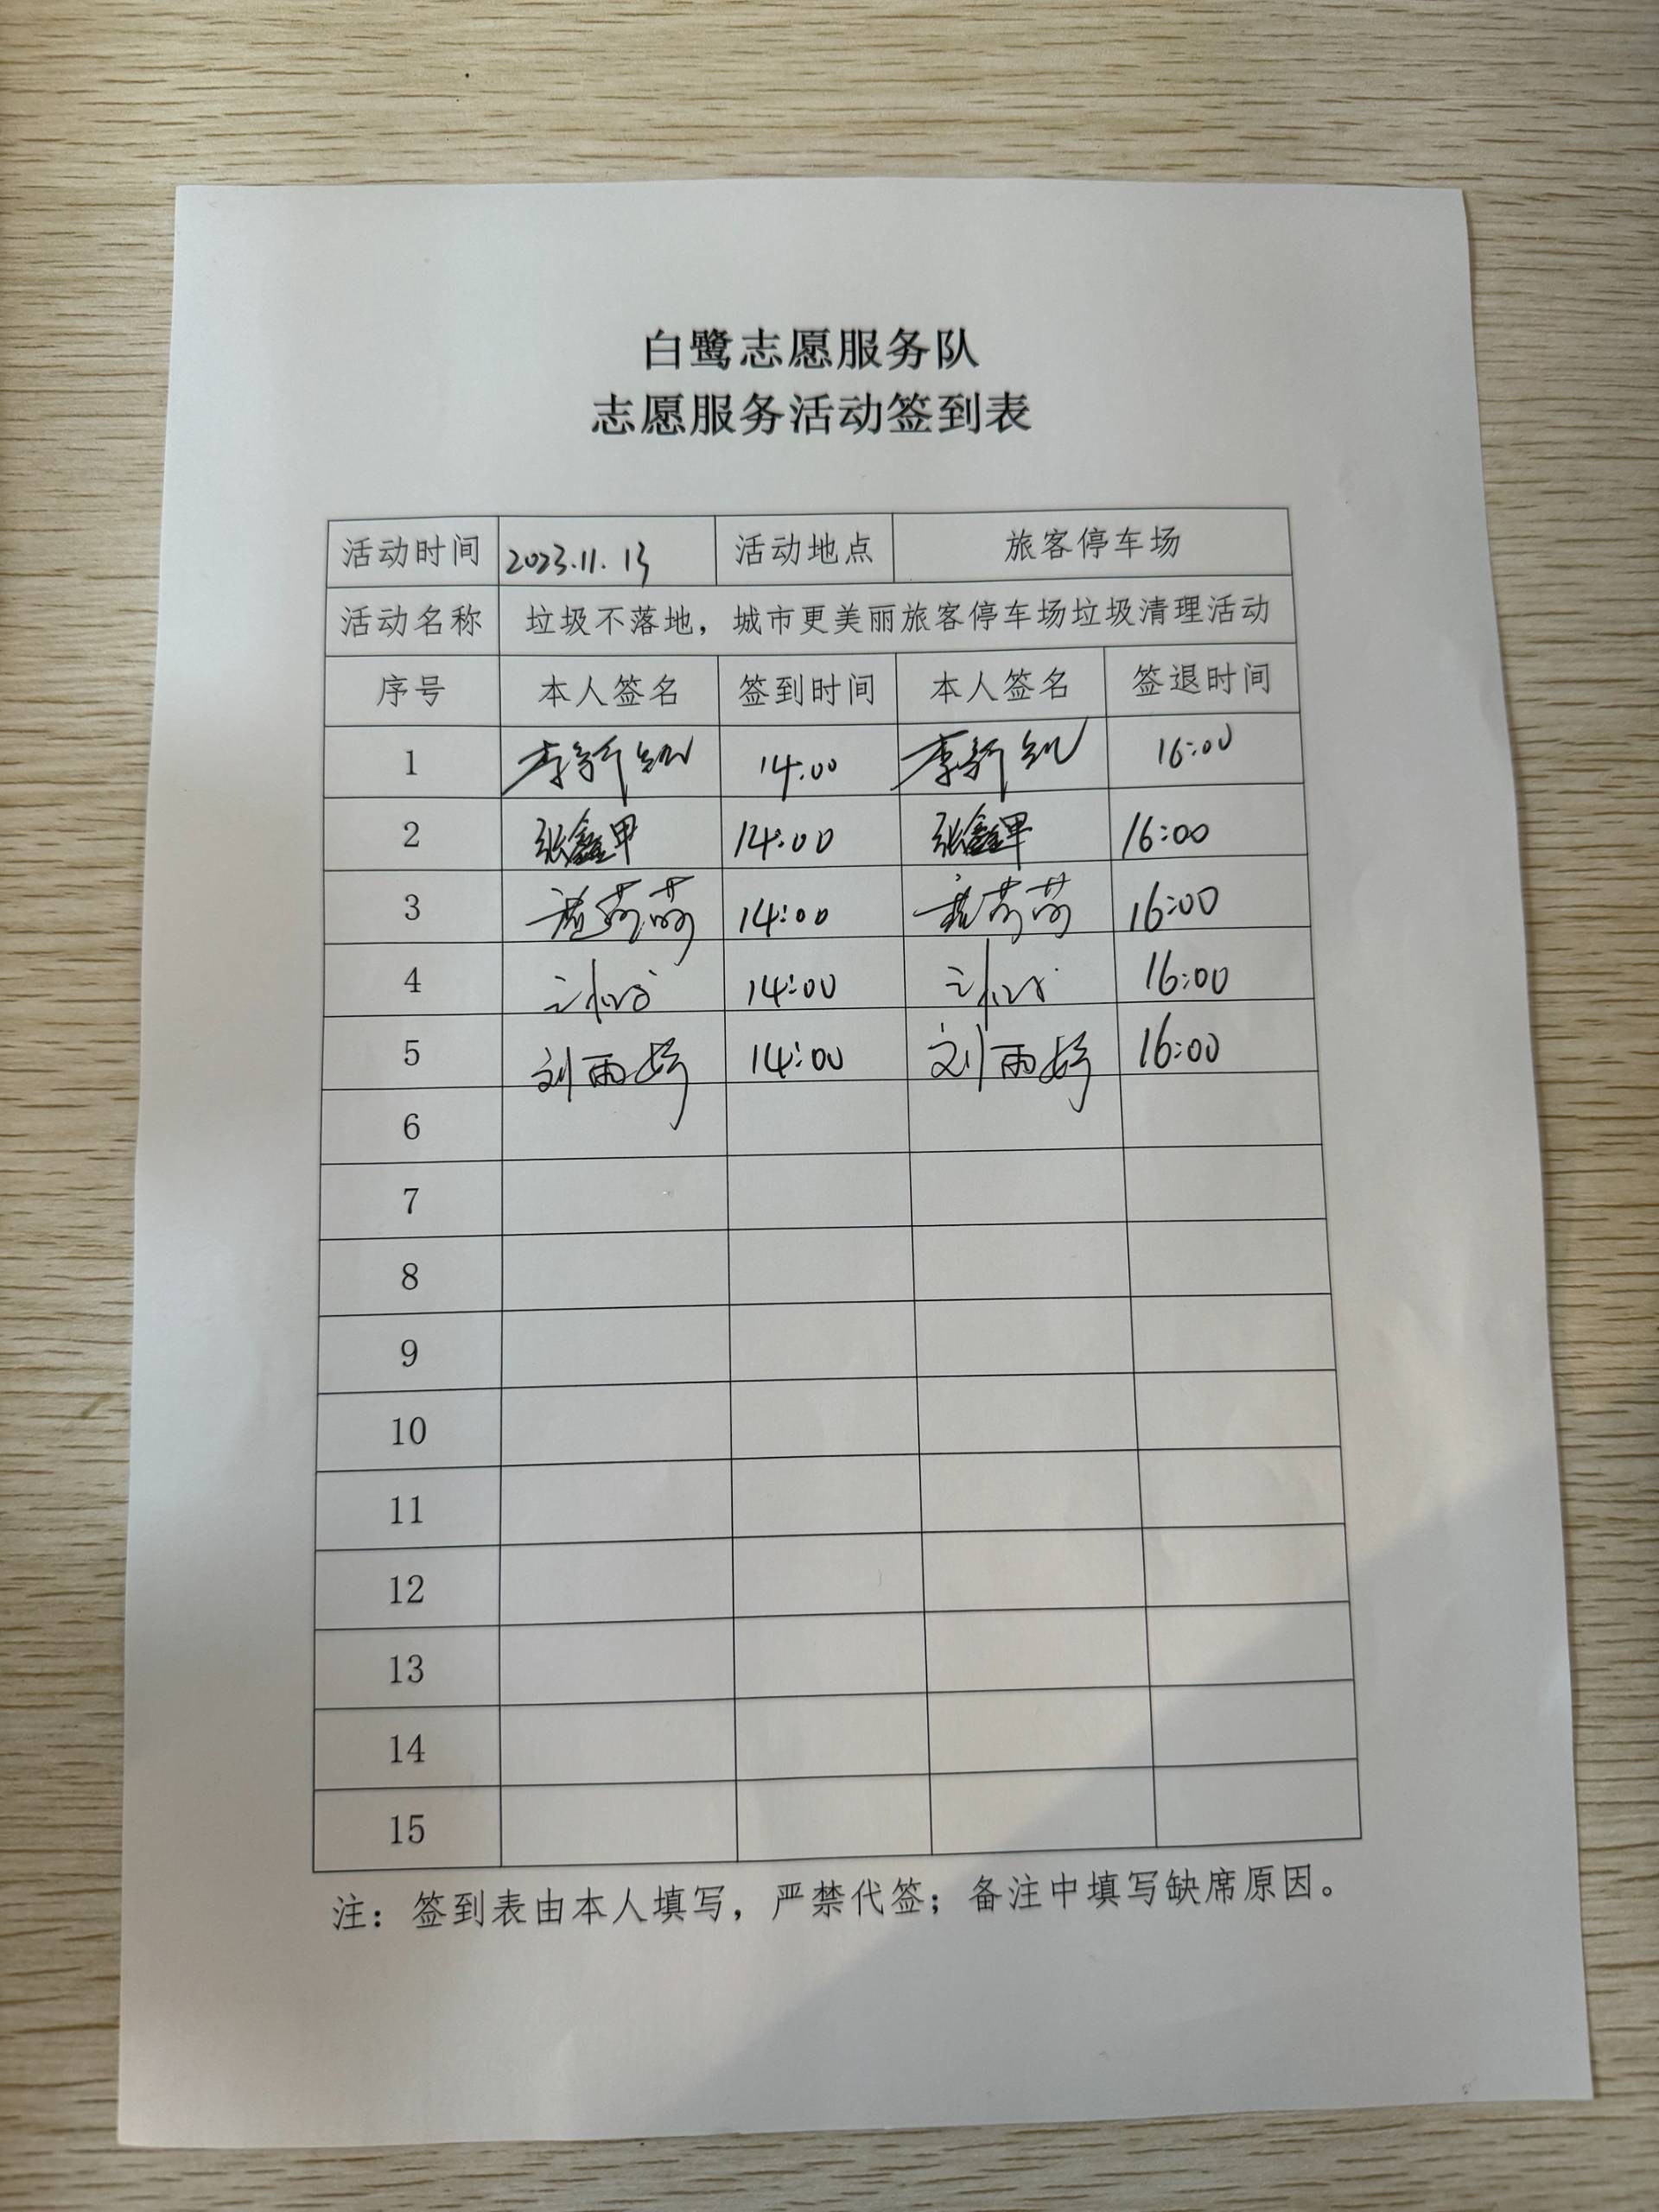 白鹭志愿服务队
志愿服务活动签到表
活动时间 2023.11.13 活动地点 旅客停车场
活动名称 垃圾不落地，城市更美丽旅客停车场垃圾清理活动
序号 本人签名 签到时间 本人签名 签退时间
1 14:00 16:00
2 张鑫 14:00 张鑫 16:00
3 14:00 16:00
4 14:00 16:00
5 刘雨婷 14:00 刘雨婷 16:00
6
7
8
9
10
11
12
13
14
15
注：签到表由本人填写，严禁代签；备注中填写缺席原因。